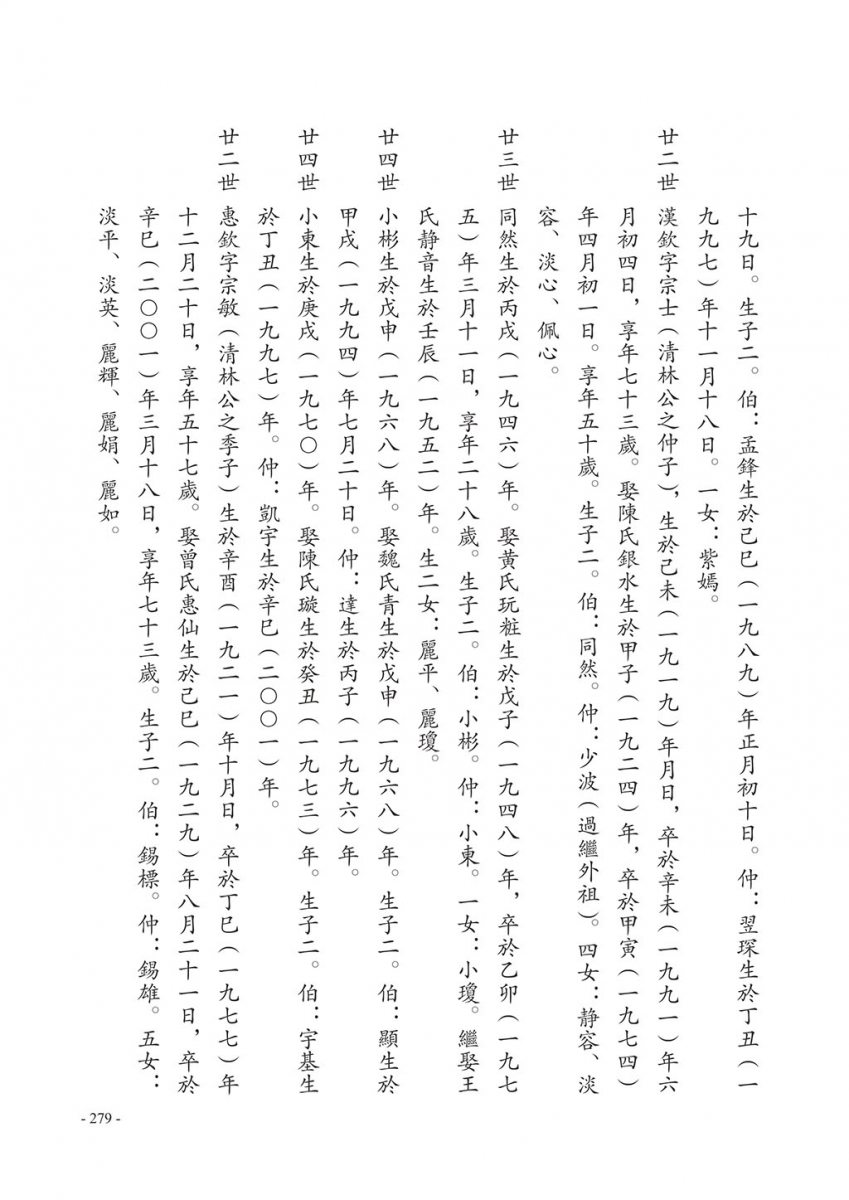 十九日。生子二。伯：孟鋒生於己巳（一九八九）年正月初十日。仲：翌琛生於丁丑（一
九九七）年十一月十八日。一女：紫嫣。
廿二世 漢欽字宗士（清林公之仲子），生於己未（一九一九）年月日，卒於辛未（一九九一）年六
月初四日，享年七十三歲。娶陳氏銀水生於甲子（一九二四）年，卒於甲寅（一九七四）
年四月初一日。享年五十歲。生子二。伯：同然。仲：少波（過繼外祖）。四女：静容、淡
容、淡心、佩心。
廿三世 同然生於丙戌（一九四六）年。娶黃氏玩粧生於戊子（一九四八）年，卒於乙卯（一九七
五）年三月十一日，享年二十八歲。生子二。伯：小彬。仲：小東。一女：小瓊。繼娶王
氏静音生於壬辰（一九五二）年。生二女：麗平、麗瓊。
廿四世 小彬生於戊申（一九六八）年。娶魏氏青生於戊申（一九六八）年。生子二。伯：顯生於
甲戌（一九九四）年七月二十日。仲：達生於丙子（一九九六）年。
廿四世 小東生於庚戌（一九七〇）年。娶陳氏璇生於癸丑（一九七三）年。生子二。伯：宇基生
於丁丑（一九九七）年。仲：凱宇生於辛巳（二〇〇一）年。
廿二世 惠欽字宗敏（清林公之季子）生於辛酉（一九二一）年十月日，卒於丁巳（一九七七）年
十二月二十日，享年五十七歲。娶曾氏惠仙生於己巳（一九二九）年八月二十一日，卒於
辛巳（二〇〇一）年三月十八日，享年七十三歲。生子二。伯：錫標。仲：錫雄。五女：
淡平、淡英、麗輝、麗娟、麗如。
- 279 -